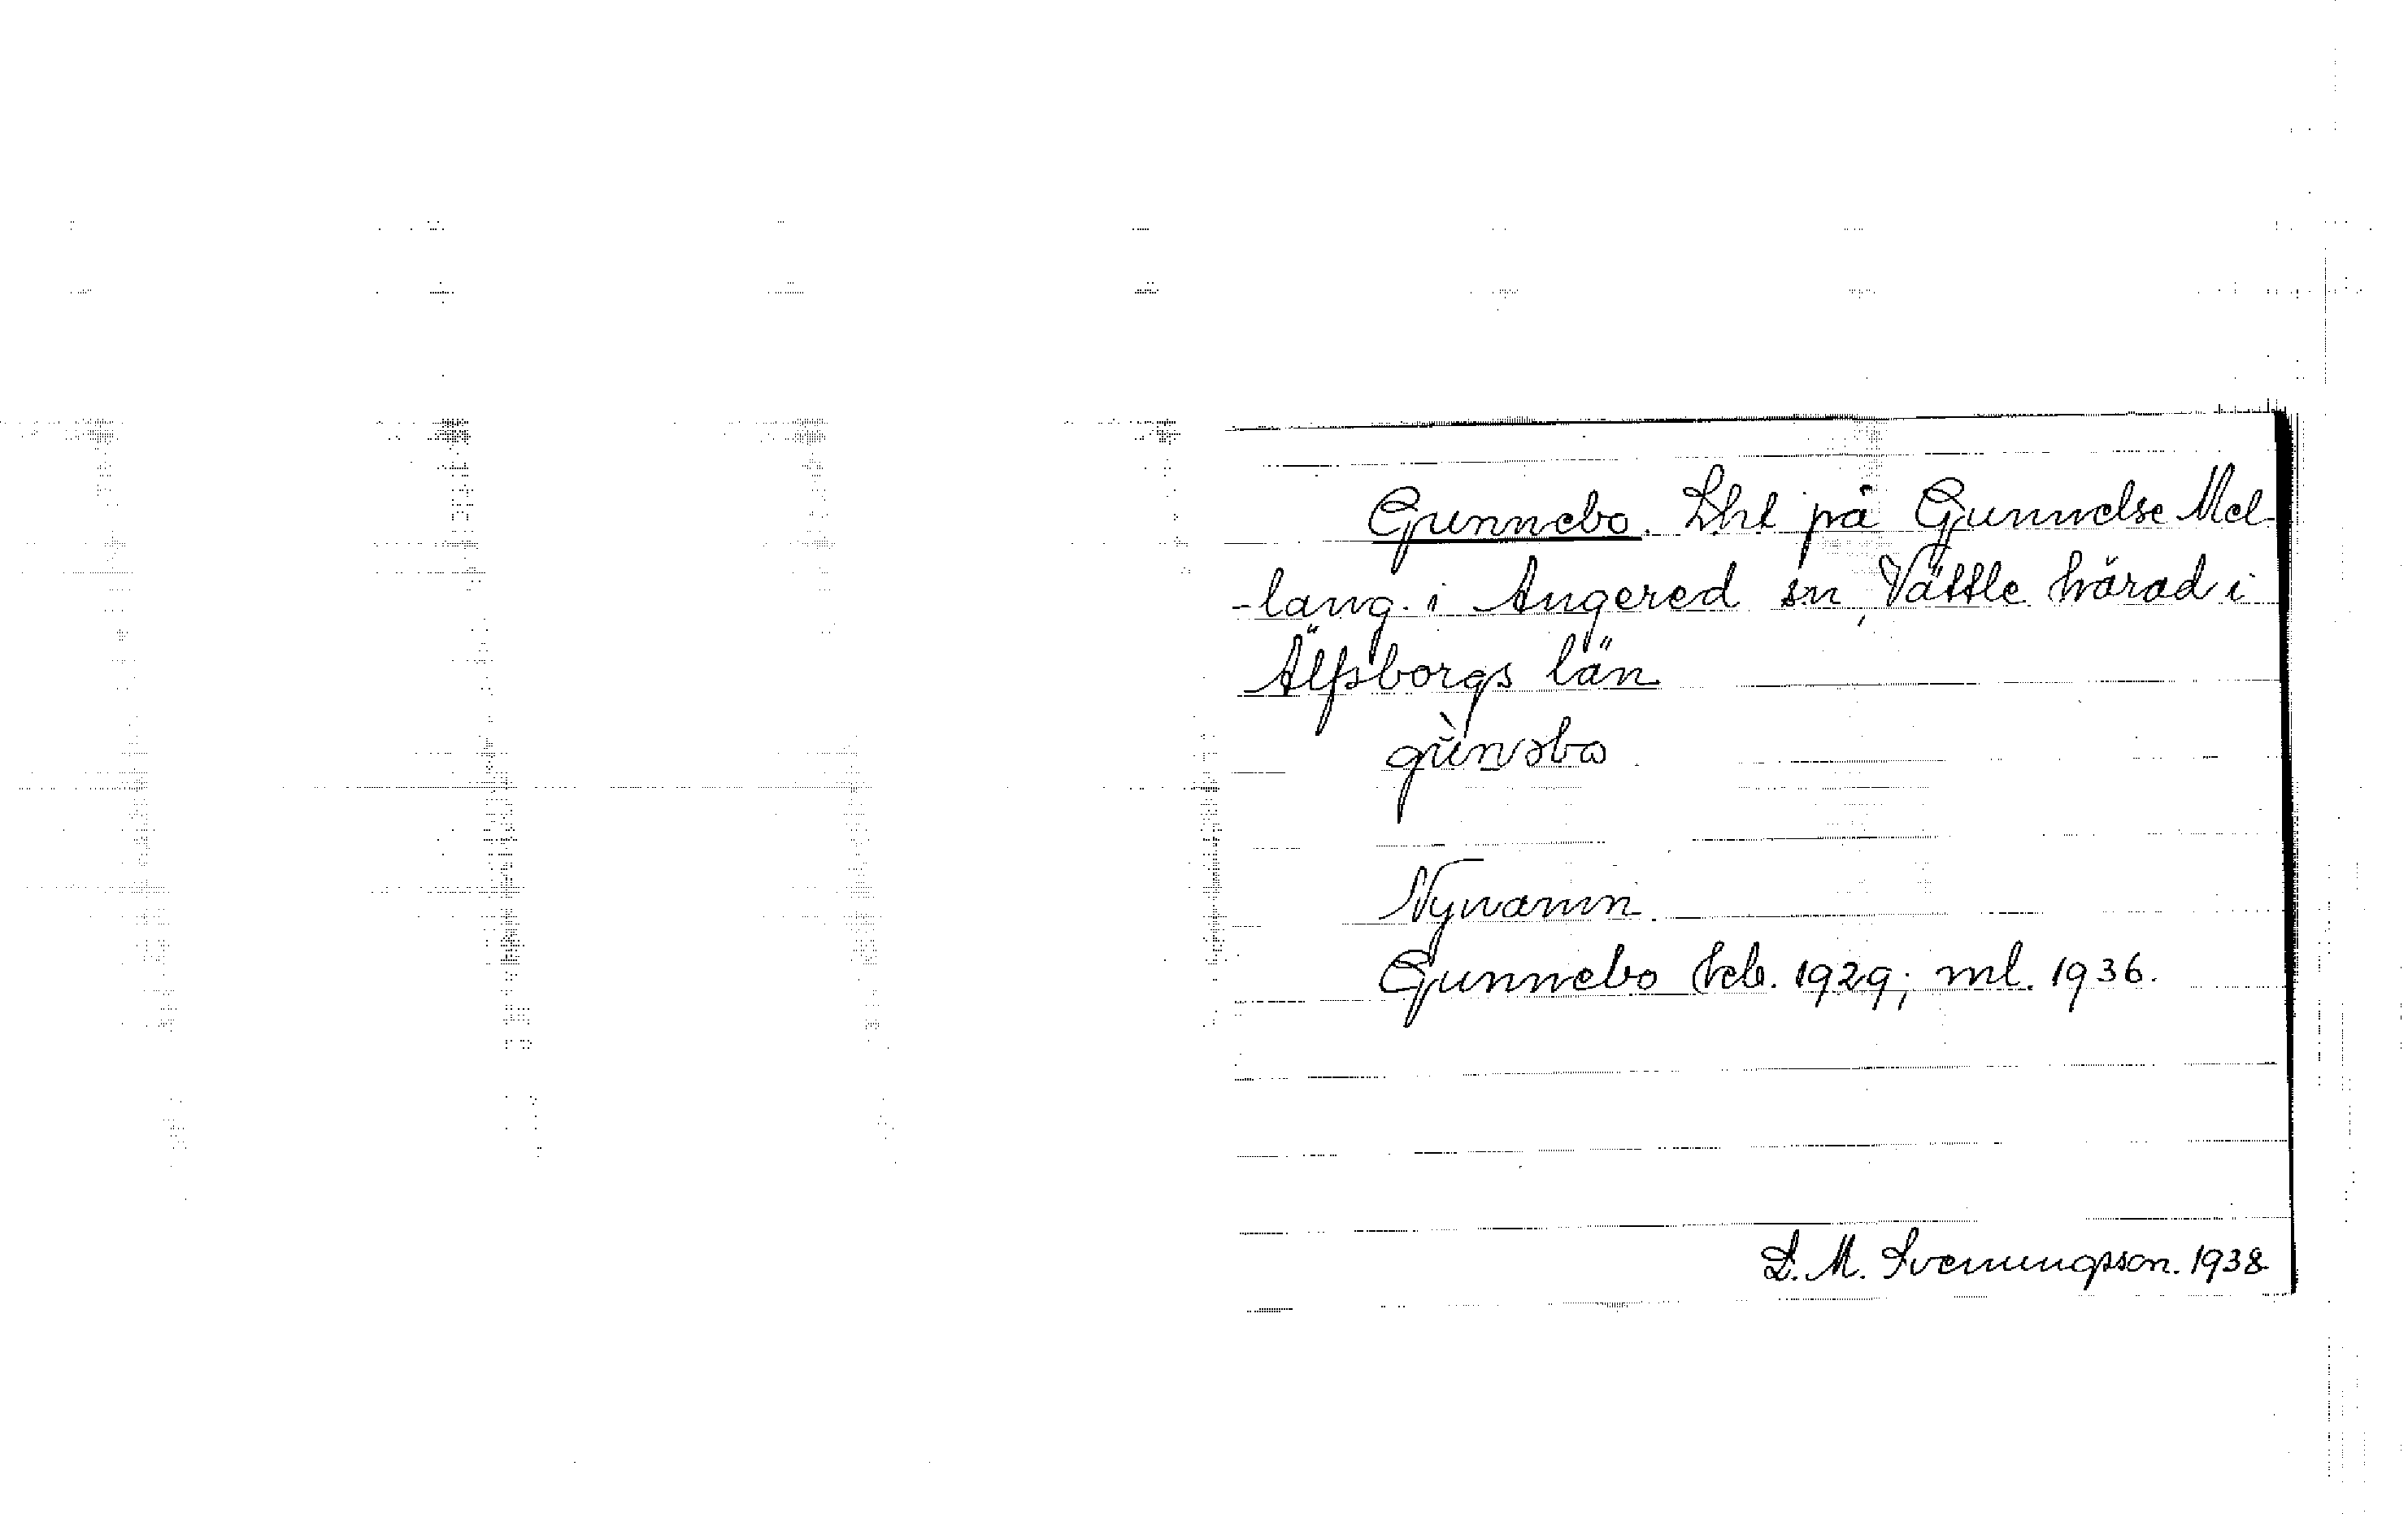 Gunnebo. Lht på Gunnelse Mel-
-lang. i Angered sn, Vättle härad i
Älfsborgs län
gùnəbo
Nynamn.
Gunnebo kcb. 1929; ml. 1936.
D. M. Svenungsson. 1938